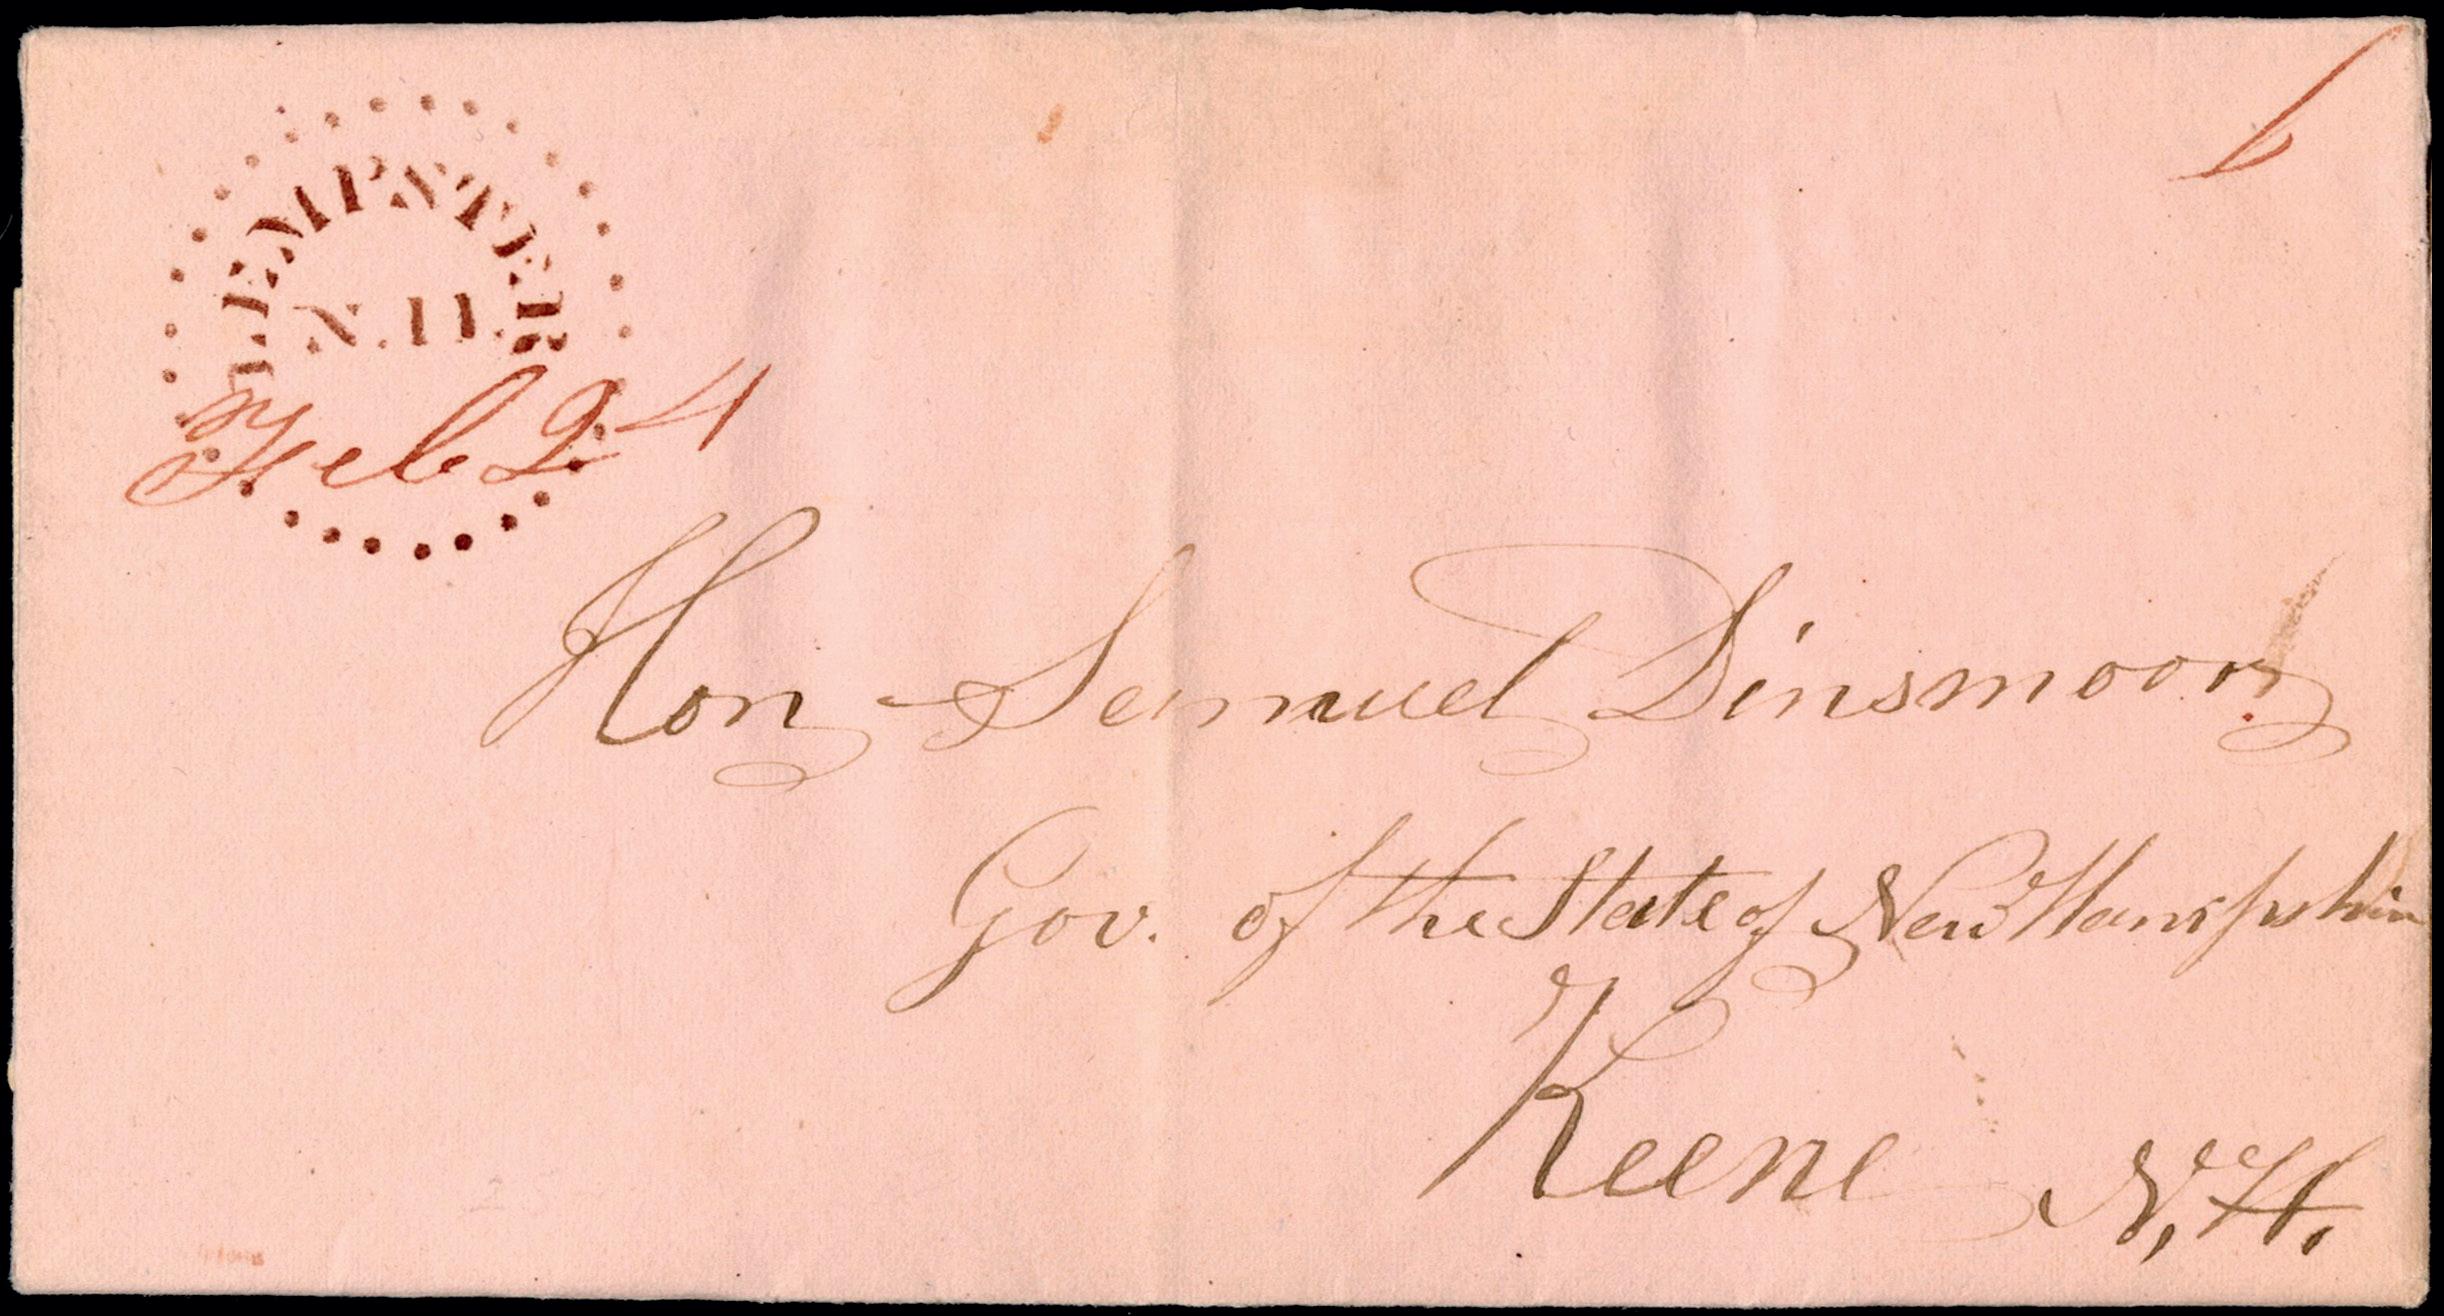 LEMPSTER
N.H.
Feb 24
6
Hon Samuel Dinsmoor
Gov. of the State of New Hampshire
Keene N.H.